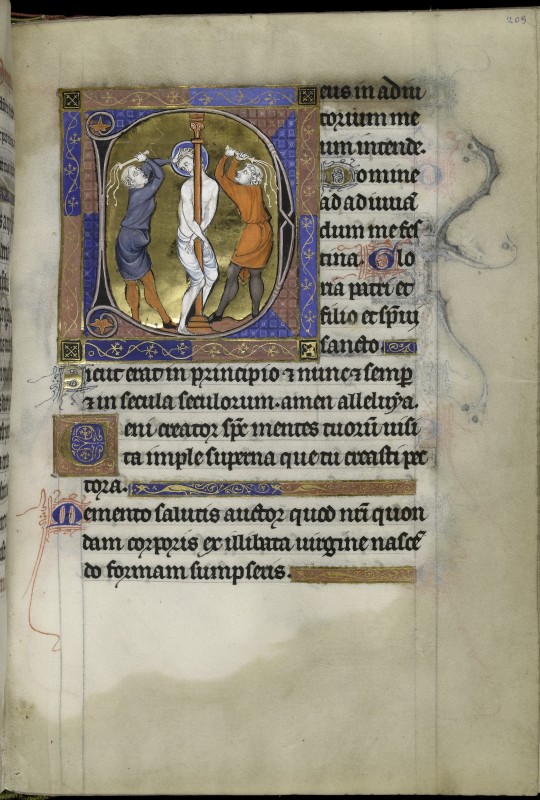 205
Deus in adiu
torium me
um intende.
Domine
ad adiuuā
dum me fes
tina. Glo
ria patri et
filio et sp̄ui
sancto.
Sicut erat in principio ⁊ nunc ⁊ semp
⁊ in secula seculorum. amen alleluya.
Ueni creator sp̄c mentes tuorū uisi
ta imple superna que tu creasti pec
tora.
Memento salutis auctor quod nr̄i quon
dam corporis ex illibata uirgine nascē
do formam sumpseris.